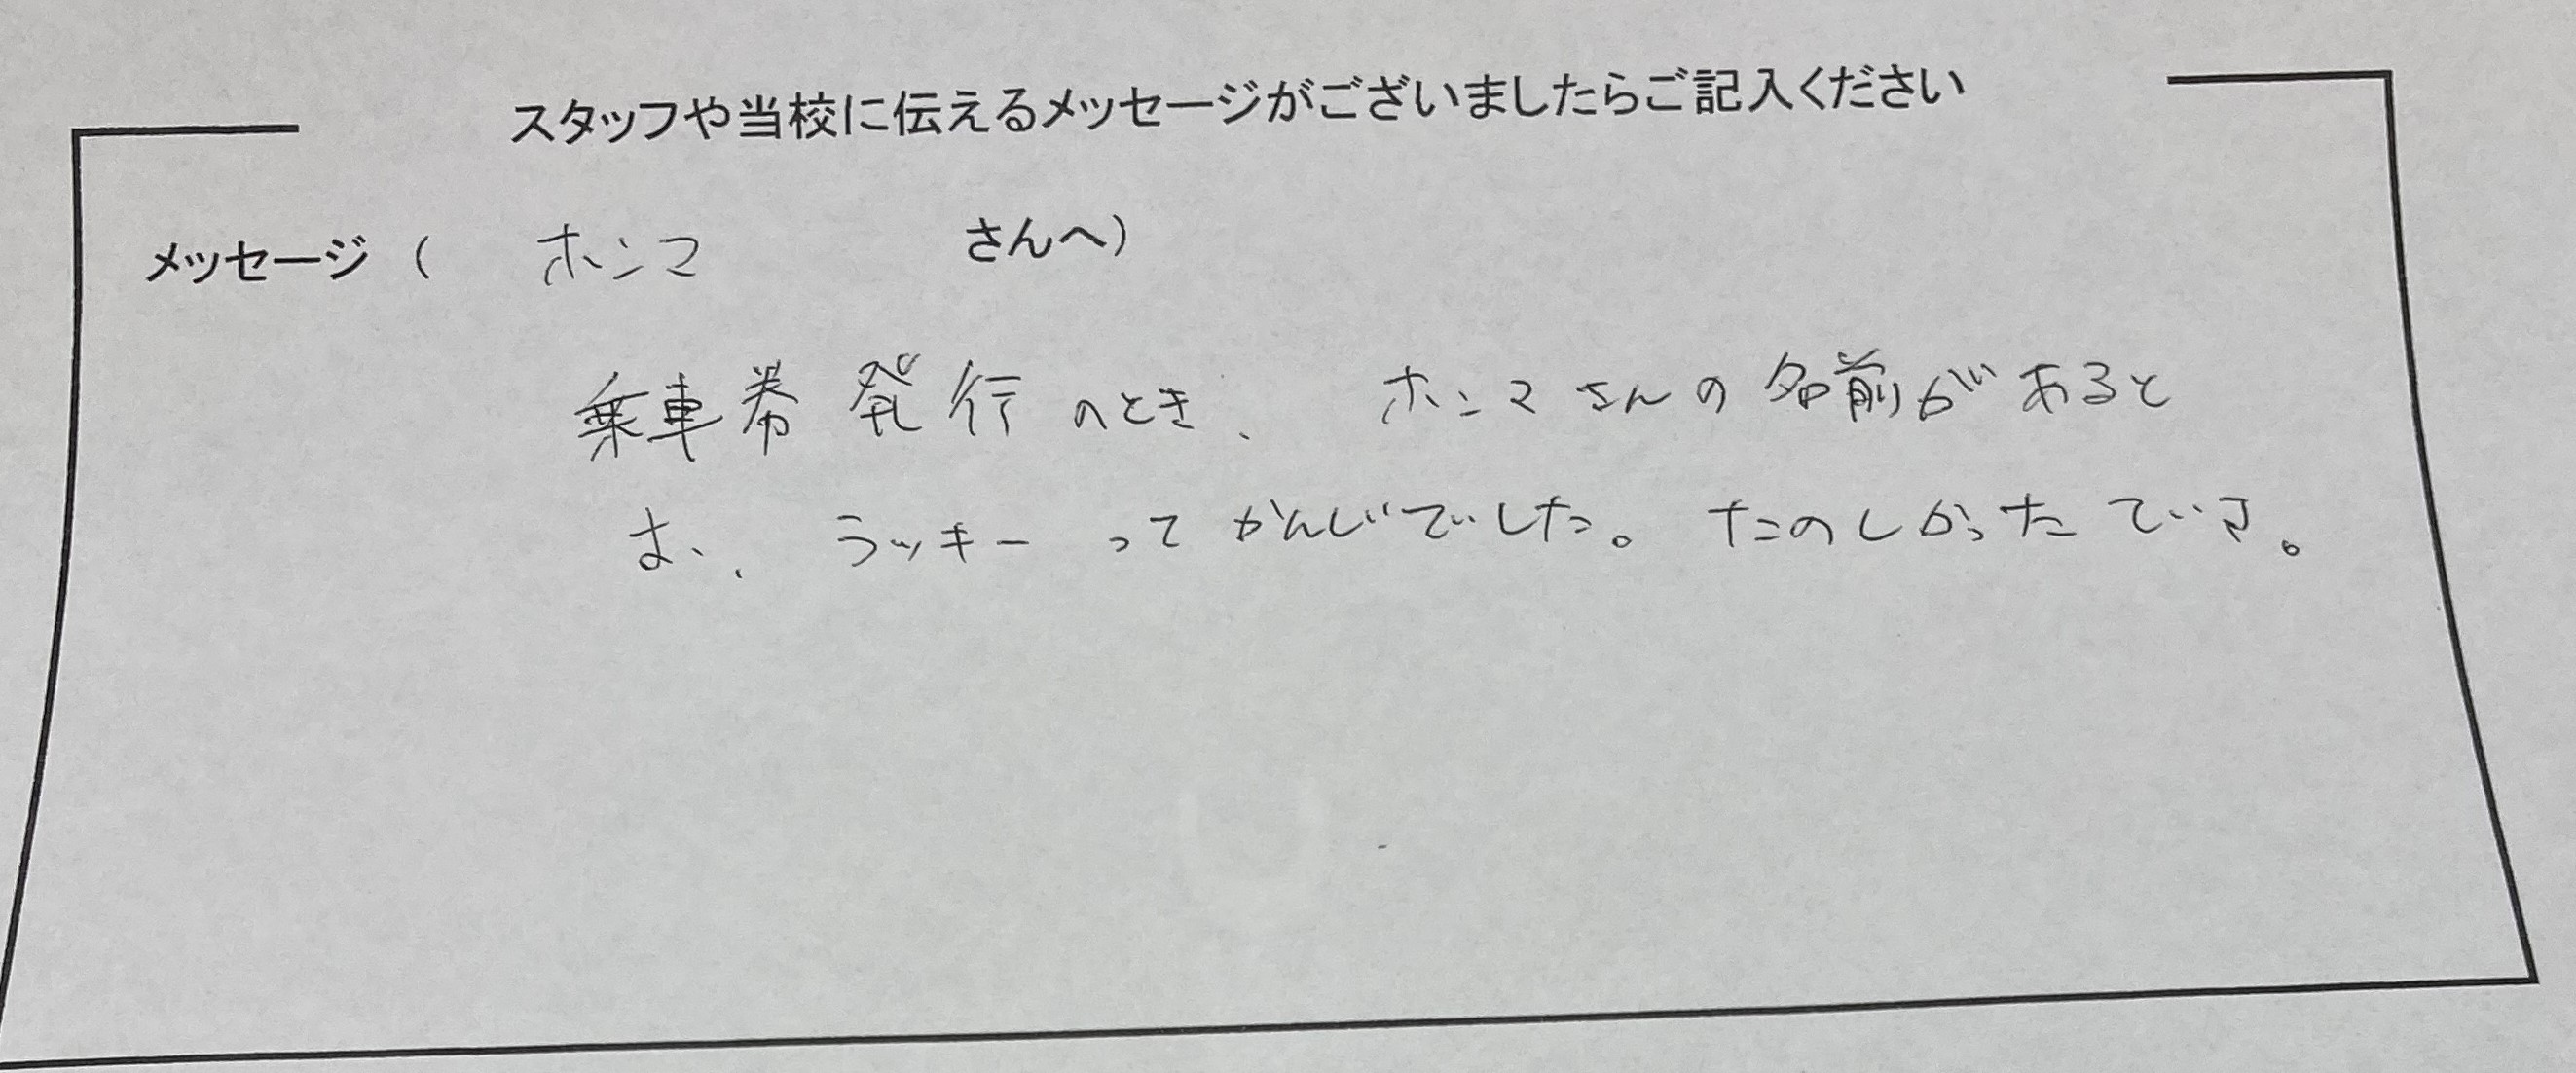 スタッフや当校に伝えるメッセージがございましたらご記入ください
メッセージ（ ホンマ さんへ）
乗車券発行のとき、ホンマさんの名前があると
お、ラッキーってかんじでした。たのしかったです。